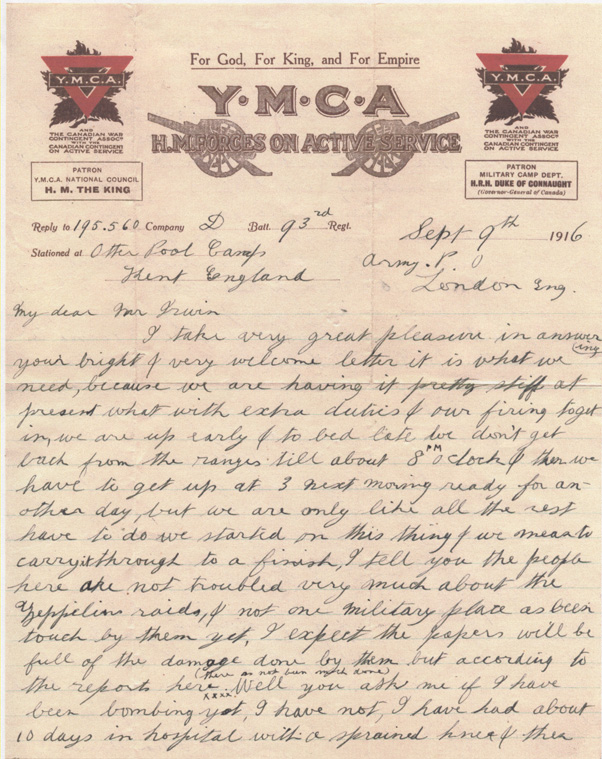 For God, For King, and For Empire
Y·M·C·A
H.M. FORCES ON ACTIVE SERVICE
Y.M.C.A.
AND
THE CANADIAN WAR
CONTINGENT ASSOCN
WITH THE
CANADIAN CONTINGENT
ON ACTIVE SERVICE
PATRON
Y.M.C.A. NATIONAL COUNCIL
H. M. THE KING
Y.M.C.A.
AND
THE CANADIAN WAR
CONTINGENT ASSOCN
WITH THE
CANADIAN CONTINGENT
ON ACTIVE SERVICE
PATRON
MILITARY CAMP DEPT.
H.R.H. DUKE OF CONNAUGHT
(Governor-General of Canada)
Reply to 195.560 Company D Batt. 93rd Regt.
Stationed at Otter Pool Camp
Kent England
Sept 9th 1916
Army. P. O
London Eng.
My dear Mr Irwin
I take very great pleasure in answering
your bright & very welcome letter it is what we
need, because we are having it pretty stiff at
present what with extra duties & our firing to get
in, we are up early & to bed late we don't get
back from the ranges till about 8 PM O clock & then we
have to get up at 3 next morning ready for an-
other day, but we are only like all the rest
have to do we started on this thing & we mean to
carry it through to a finish, I tell you the people
here are not troubled very much about the
Zeppelins raids, & not one military place as been
touch by them yet, I expect the papers will be
full of the damage done by them but according to
the reports here (there as not been much done)
xxxx. Well you ask me if I have
been bombing yet, I have not, I have had about
10 days in hospital with a sprained knee & then